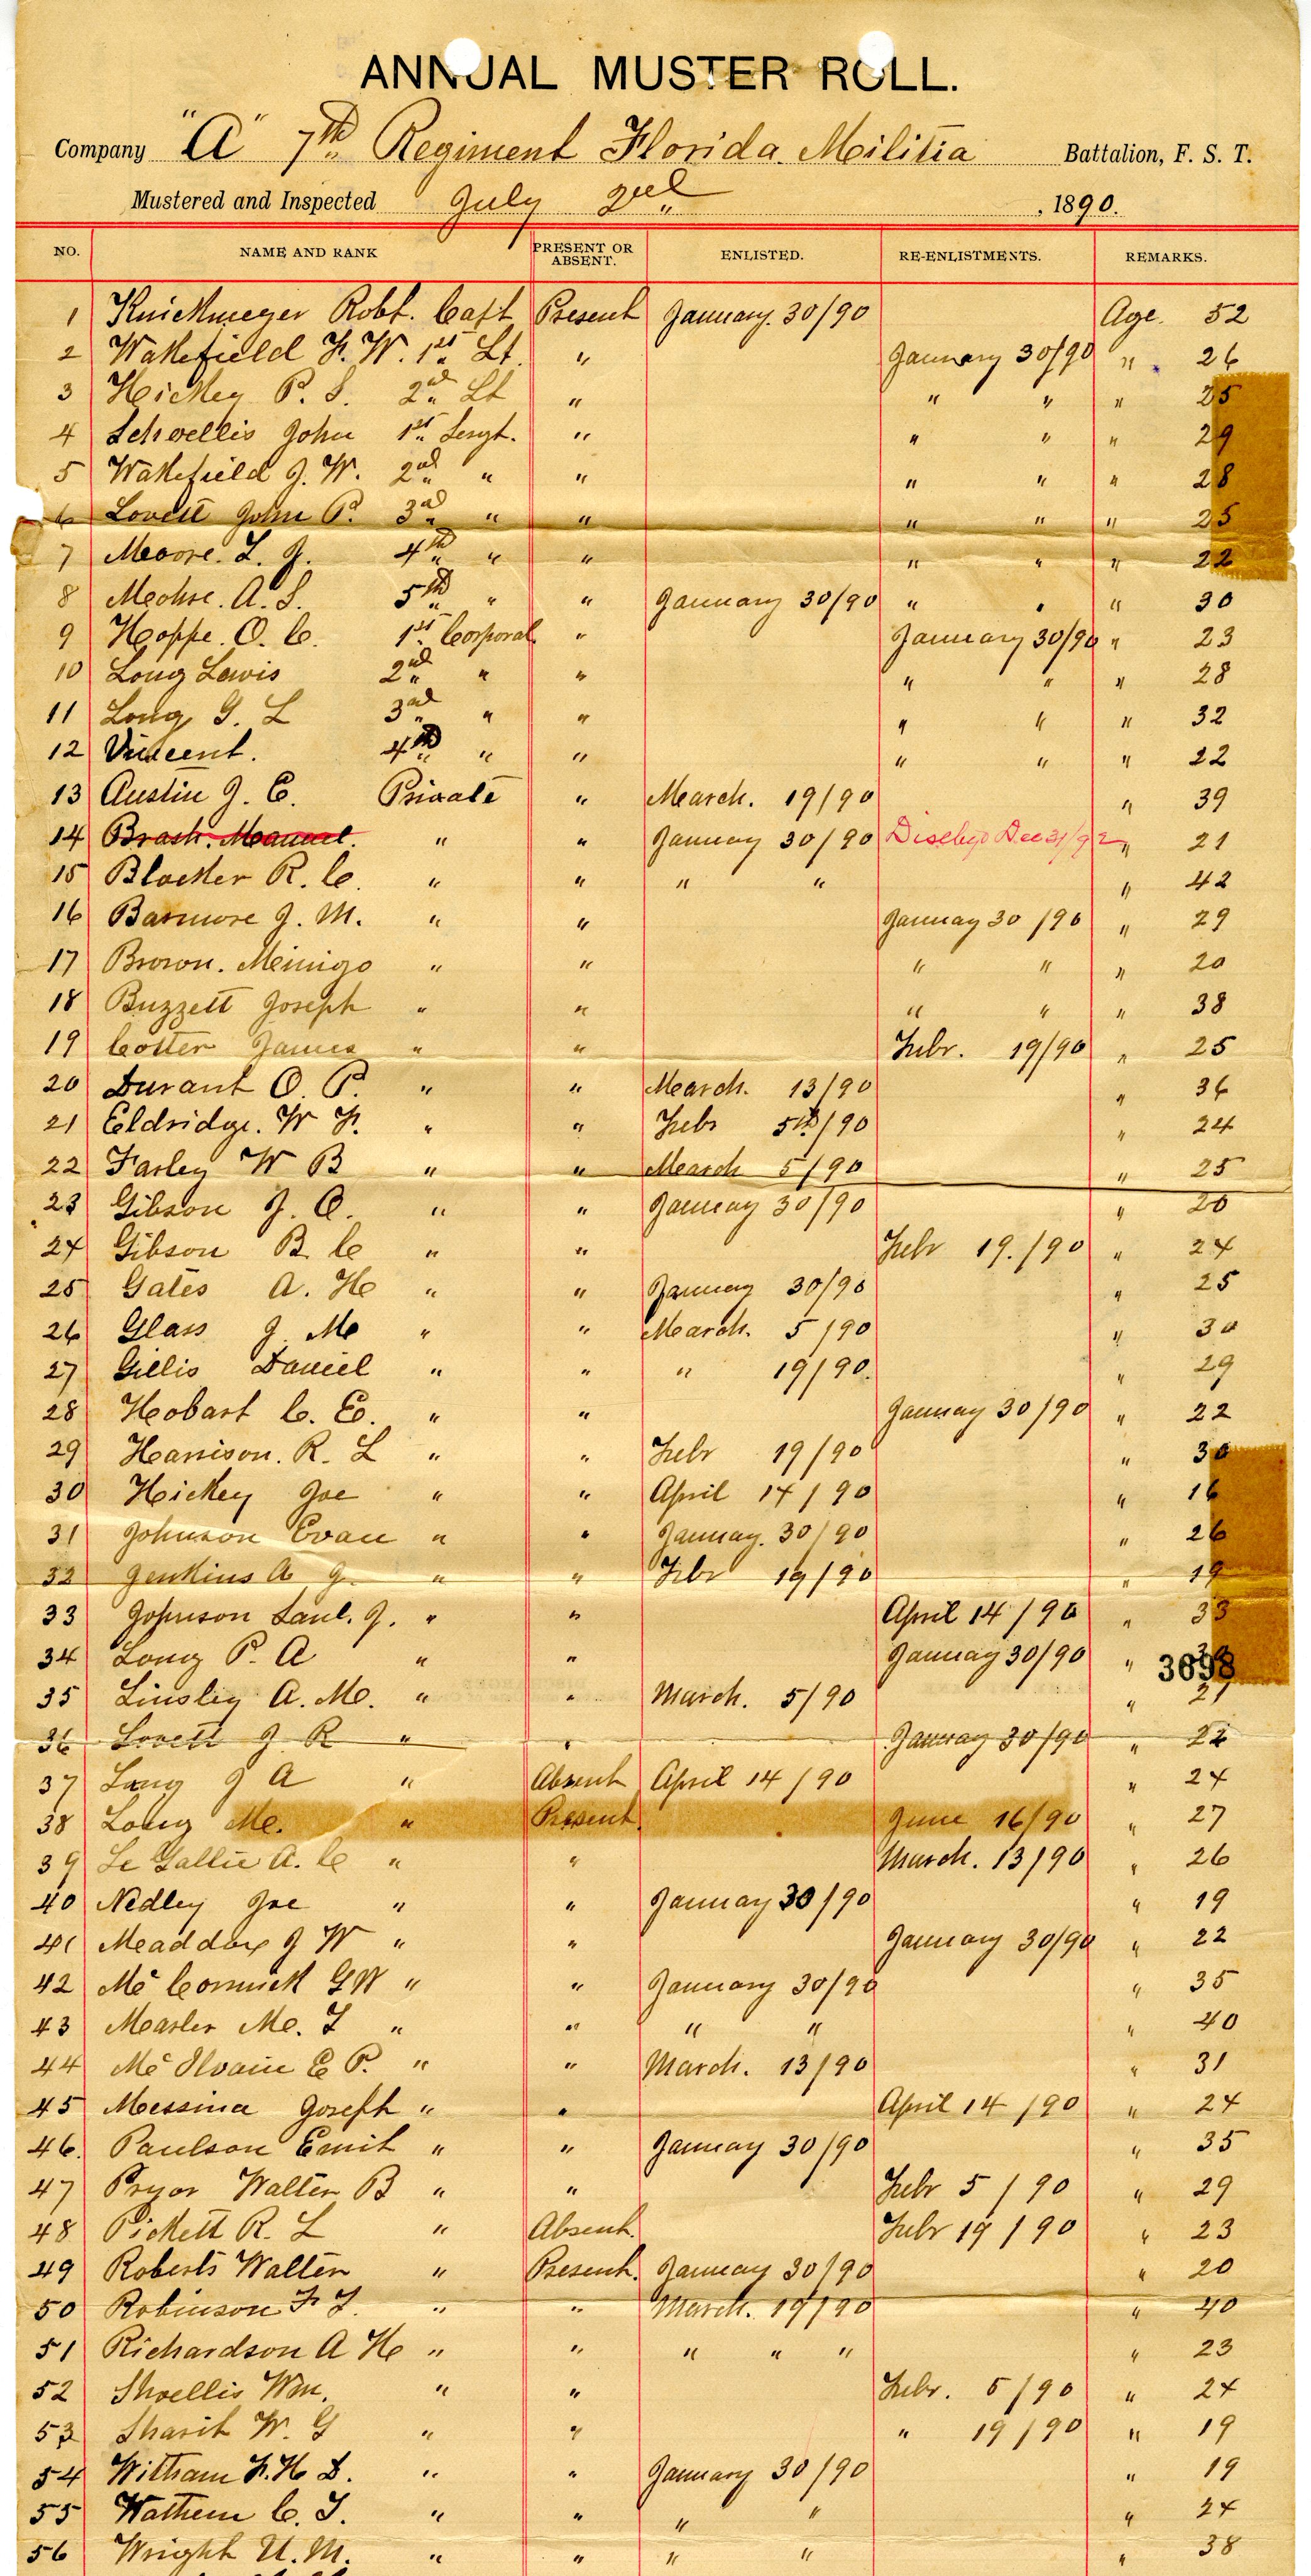 ANNUAL MUSTER ROLL.
Company "A" 7th Regiment Florida Militia Battalion, F. S. T.
Mustered and Inspected July 2nd, 1890.
NO. NAME AND RANK PRESENT OR ABSENT. ENLISTED. RE-ENLISTMENTS. REMARKS.
1 Knickmeyer Robt. Capt Present January. 30/90 Age. 52
2 Wakefield F. W. 1st Lt. " January 30/90 " 26
3 Hickey P. S. 2nd Lt " " " " 25
4 Schoellis John 1st Sergt. " " " " 29
5 Wakefield J. W. 2nd " " " " " 28
6 Lovett John P. 3rd " " " " " 25
7 Moore. L. J. 4th " " " " " 22
8 A. S. 5th " " January 30/90 " " " 30
9 Hoppe. O. C. 1st Corporal " January 30/90 " 23
10 Long Lewis 2nd " " " " " 28
11 Long G. L 3rd " " " " " 32
12 Vincent. 4th " " " " " 22
13 Austin J. E. Private " March. 19/90 " 39
14 Brash. Manuel. " " January 30/90 Dischgd Dec 31/92 " 21
15 Blocker R. C. " " " " " 42
16 Barmore J. M. " " January 30/90 " 29
17 Brown. " " " " " 20
18 Buzzett Joseph " " " " " 38
19 Cotter James " " Febr. 19/90 " 25
20 Durant O. P. " " March. 13/90 " 36
21 Eldridge. W F. " " Febr 5th/90 " 24
22 Farley W B " " March 5/90 " 25
23 Gibson J. A. " " January 30/90 " 20
24 Gibson B. C " " Febr 19./90 " 24
25 Gates A. H " " January 30/90 " 25
26 Glass J. M " " March. 5/90 " 30
27 Gillis Daniel " " " 19/90. " 29
28 Hobart C. E. " " January 30/90 " 22
29 Harrison. R. L " " Febr 19/90 " 30
30 Hickey Joe " " April 14/90 " 16
31 Johnson Evan " " January. 30/90 " 26
32 Jenkins A J. " " Febr 19/90 " 19
33 Johnson Saul. J. " " April 14/90 " 33
34 Long P. A " " January 30/90 "
3698
35 Linsley A. M. " " March. 5/90 " 21
36 Lovett J R " " January 30/90 " 22
37 Long J A " Absent April 14/90 " 24
38 Long M. " Present. June 16/90 " 27
39 Le Gallie A. C " " March. 13/90 " 26
40 Nedley Joe " " January 30/90 " 19
41 Maddox J W " " January 30/90 " 22
42 Mc Cormick G W " " January 30/90 " 35
43 Marler M. T " " " " " 40
44 Mc Ilvain E P. " " March. 13/90 " 31
45 Messina Joseph " " April 14/90 " 24
46. Paulson Emil " " January 30/90 " 35
47 Pryor Walter B " " Febr 5/90 " 29
48 Pickett R. L " Absent. Febr 19/90 " 23
49 Roberts Walter " Present. January 30/90 " 20
50 Robinson F. J. " " March. 19/90 " 40
51 Richardson A H " " " " " " 23
52 Shoellis Wm. " " Febr. 5/90 " 24
53 Sharit W. G " " " 19/90 " 19
54 Witham F. H. D. " " January 30/90 " 19
55 Wathen C. T. " " " " " 24
56 Wright U. M. " " " " " 38